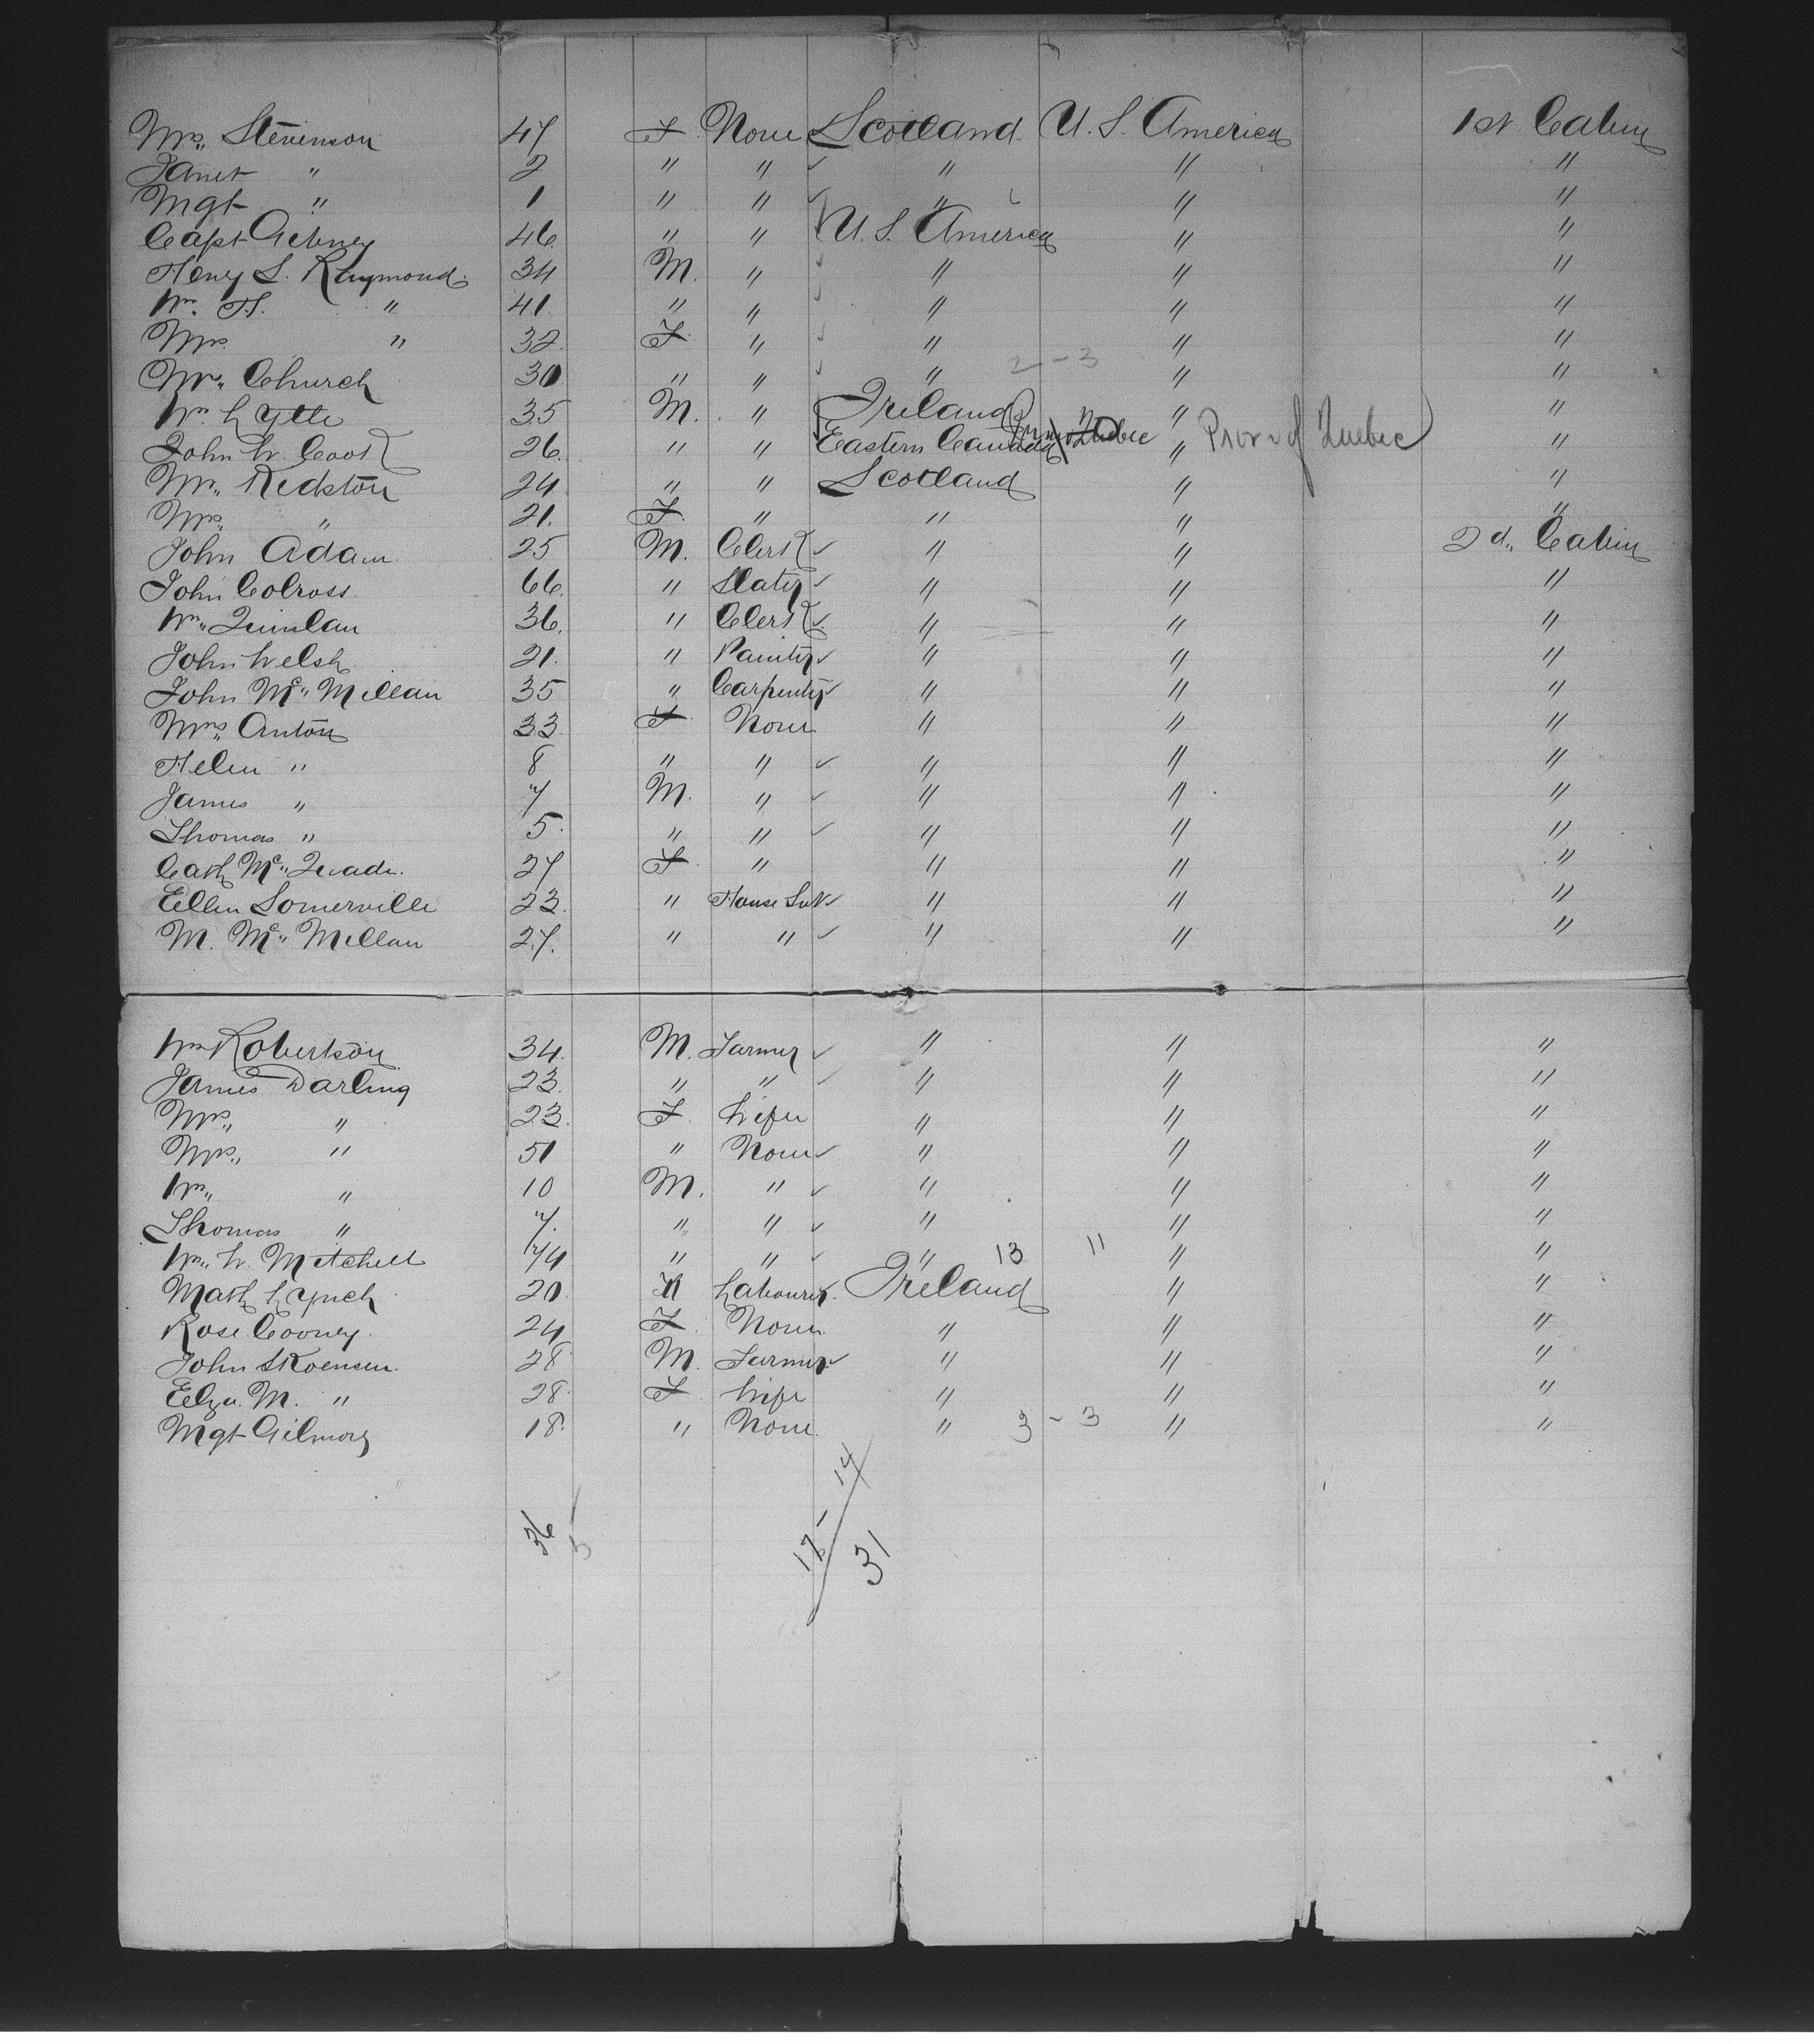 Mrs. Stevenson 47 F None Scotland U. S. America 1st Cabin
Janet " 2 " " " " "
Mgt " 1 " " " " "
Capt 46 " " U. S. America " "
Henry S. Raymond 34 M. " " " "
Wm. H. " 41 " " " " "
Mrs. " 32 F " " " "
Church 30 " " " " "
2 - 3
Wm Lytle 35 M. " Ireland " "
John W. Cook 26 " " Eastern Canada Quebec " Prov of Quebec "
Redston 24 " " Scotland " "
Mrs. " 21. F. " " " "
John Adam 25 M. Clerk " " 2d. Cabin
John Colross 66 " Slater " " "
Wm Quinlan 36. " Clerk " " "
John Welsh 21. " Painter " " "
John Mc Millan 35 " Carpenter " " "
Mrs Anton 33 F None " " "
Helen " 8 " " " " "
James " 7 M. " " " "
Thomas " 5 " " " " "
Cath Mc Quade. 27 F " " " "
Ellen Somerville 23 " House Svt " " "
M. Mc Millan 27. " " " " "
Wm Robertson 34. M. Farmer " " "
James Darling 23 " " " " "
Mrs. " 23 F Wife " " "
Mrs. " 51 " None " " "
Wm " 10 M. " " " "
Thomas " 7. " " " " "
Wm. W. Mitchell 74 " " " 13 11 " "
Math Lynch 20 M Labourer Ireland " "
Rose Cooney 24 F None " " "
John 28 M. Farmer " " "
Elza. M. " 28 F Wife " " "
Mgt Gilmory 18. " None " 3 - 3 " "
36 5
17 - 14
31